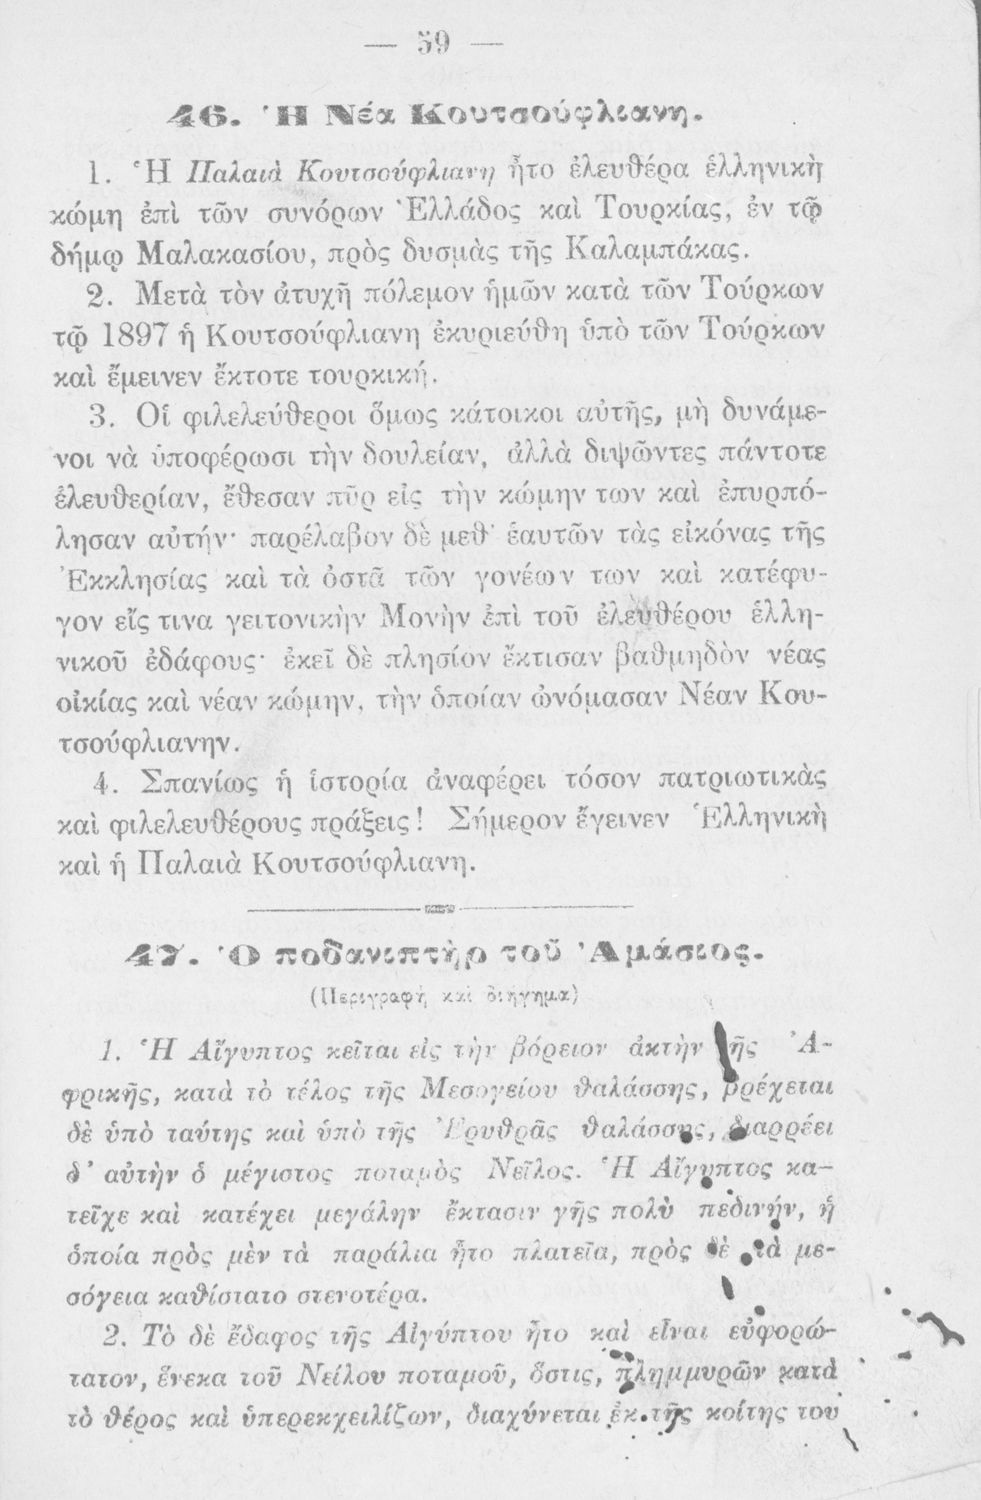 — 59 —
46. Ἡ Νέα Κουτσούφλιανη.
1. Ἡ Παλαιὰ Κουτσούφλιανη ἦτο ἐλευθέρα ἑλληνικὴ
κώμη ἐπὶ τῶν συνόρων Ἑλλάδος καὶ Τουρκίας, ἐν τῷ
δήμῳ Μαλακασίου, πρὸς δυσμὰς τῆς Καλαμπάκας.
2. Μετὰ τὸν ἀτυχῆ πόλεμον ἡμῶν κατὰ τῶν Τούρκων
τῷ 1897 ἡ Κουτσούφλιανη ἐκυριεύθη ὑπὸ τῶν Τούρκων
καὶ ἔμεινεν ἔκτοτε τουρκική.
3. Οἱ φιλελεύθεροι ὅμως κάτοικοι αὐτῆς, μὴ δυνάμε-
νοι νὰ ὑποφέρωσι τὴν δουλείαν, ἀλλὰ διψῶντες πάντοτε
ἐλευθερίαν, ἔθεσαν πῦρ εἰς τὴν κώμην των καὶ ἐπυρπό-
λησαν αὐτήν· παρέλαβον δὲ μεθ' ἑαυτῶν τὰς εἰκόνας τῆς
Ἐκκλησίας καὶ τὰ ὀστᾶ τῶν γονέων των καὶ κατέφυ-
γον εἴς τινα γειτονικὴν Μονὴν ἐπὶ τοῦ ἐλευθέρου ἑλλη-
νικοῦ ἐδάφους· ἐκεῖ δὲ πλησίον ἔκτισαν βαθμηδὸν νέας
οἰκίας καὶ νέαν κώμην, τὴν ὁποίαν ὠνόμασαν Νέαν Κου-
τσούφλιανην.
4. Σπανίως ἡ ἱστορία ἀναφέρει τόσον πατριωτικὰς
καὶ φιλελευθέρους πράξεις! Σήμερον ἔγεινεν Ἑλληνικὴ
καὶ ἡ Παλαιὰ Κουτσούφλιανη.
47. Ὁ ποδανιπτὴρ τοῦ Ἀμάσιος.
(Περιγραφὴ καὶ διήγημα)
1. Ἡ Αἴγυπτος κεῖται εἰς τὴν βόρειον ἀκτὴν τῆς Ἀ-
φρικῆς, κατὰ τὸ τέλος τῆς Μεσογείου θαλάσσης, βρέχεται
δὲ ὑπὸ ταύτης καὶ ὑπὸ τῆς Ἐρυθρᾶς θαλάσσης, διαρρέει
δ' αὐτὴν ὁ μέγιστος ποταμὸς Νεῖλος. Ἡ Αἴγυπτος κα-
τεῖχε καὶ κατέχει μεγάλην ἔκτασιν γῆς πολὺ πεδινήν, ἡ
ὁποία πρὸς μὲν τὰ παράλια ἦτο πλατεῖα, πρὸς δὲ τὰ με-
σόγεια καθίστατο στενοτέρα.
2. Τὸ δὲ ἔδαφος τῆς Αἰγύπτου ἦτο καὶ εἶναι εὐφορώ-
τατον, ἕνεκα τοῦ Νείλου ποταμοῦ, ὅστις, πλημμυρῶν κατὰ
τὸ θέρος καὶ ὑπερεκχειλίζων, διαχύνεται ἐκ τῆς κοίτης του